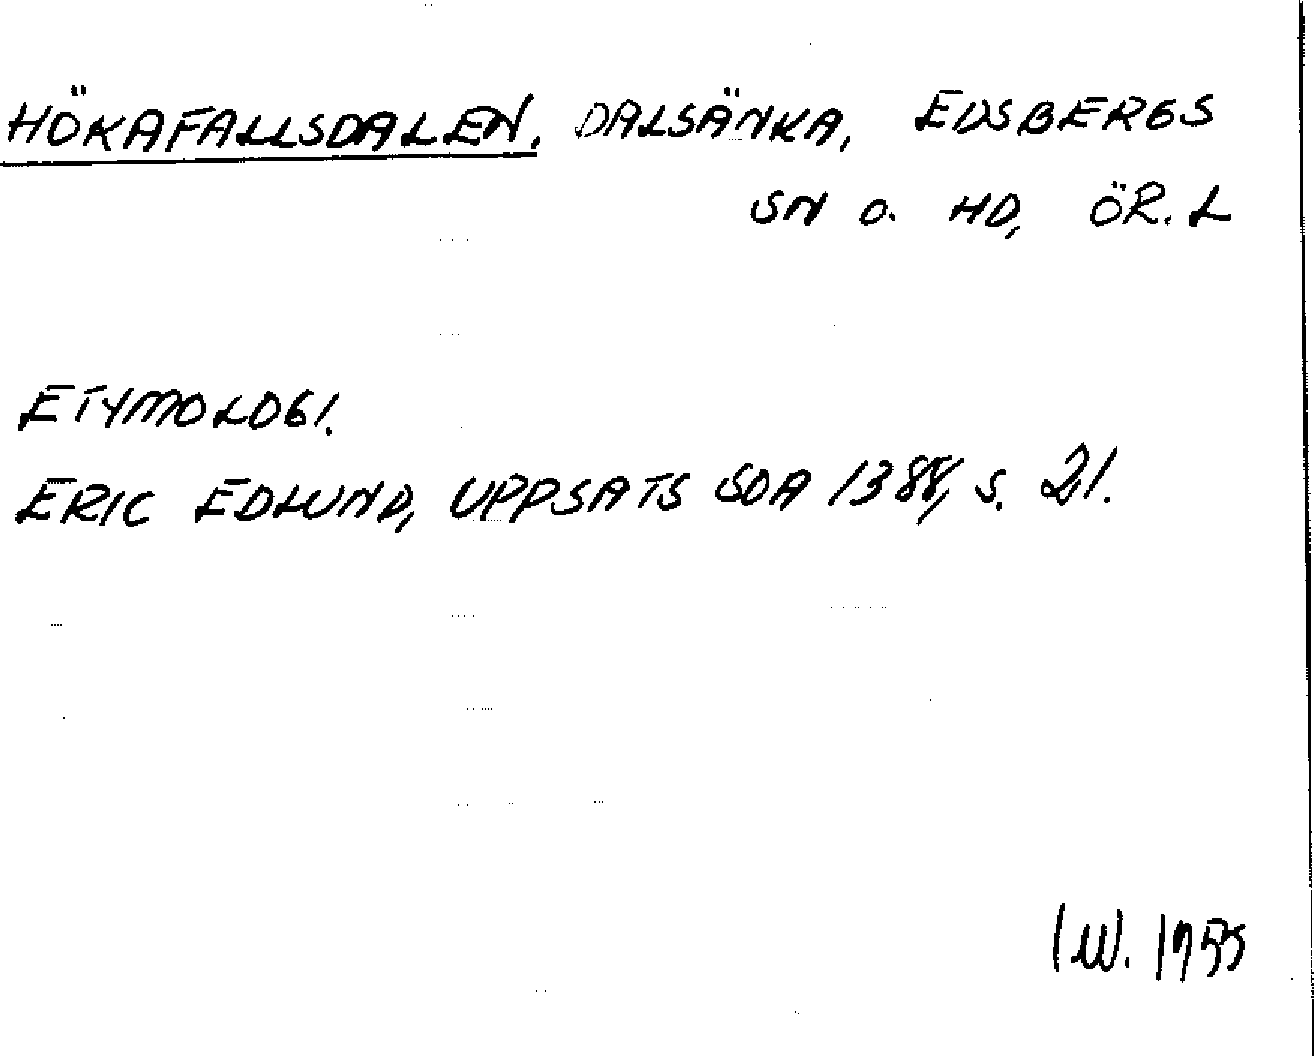 HÖKAFALLSDALEN, DALSÄNKA, EDSBERGS
SN O. HD, ÖR. L
ETYMOLOGI.
ERIC EDLUND, UPPSATS SOA 1388, S. 21.